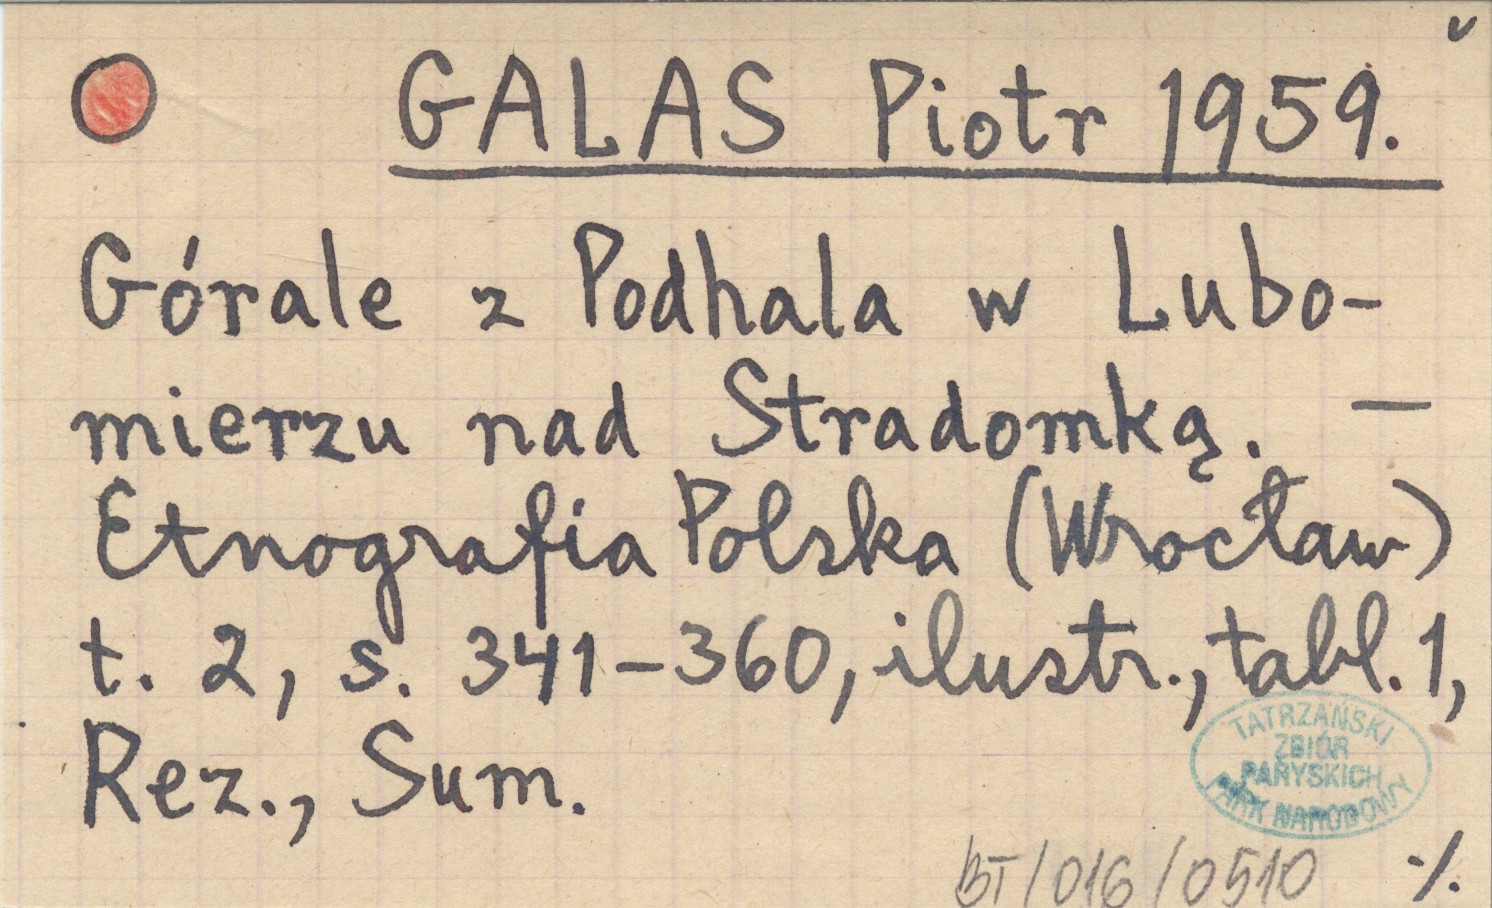 v
GALAS Piotr 1959.
Górale z Podhala w Lubo-
mierzu nad Stradomką. —
Etnografia Polska (Wrocław)
t. 2, s. 341-360, ilustr., tabl. 1,
Rez., Sum.
TATRZAŃSKI
ZBIÓR
PARYSKICH
PARK NARODOWY
BT/016/0510
·/.